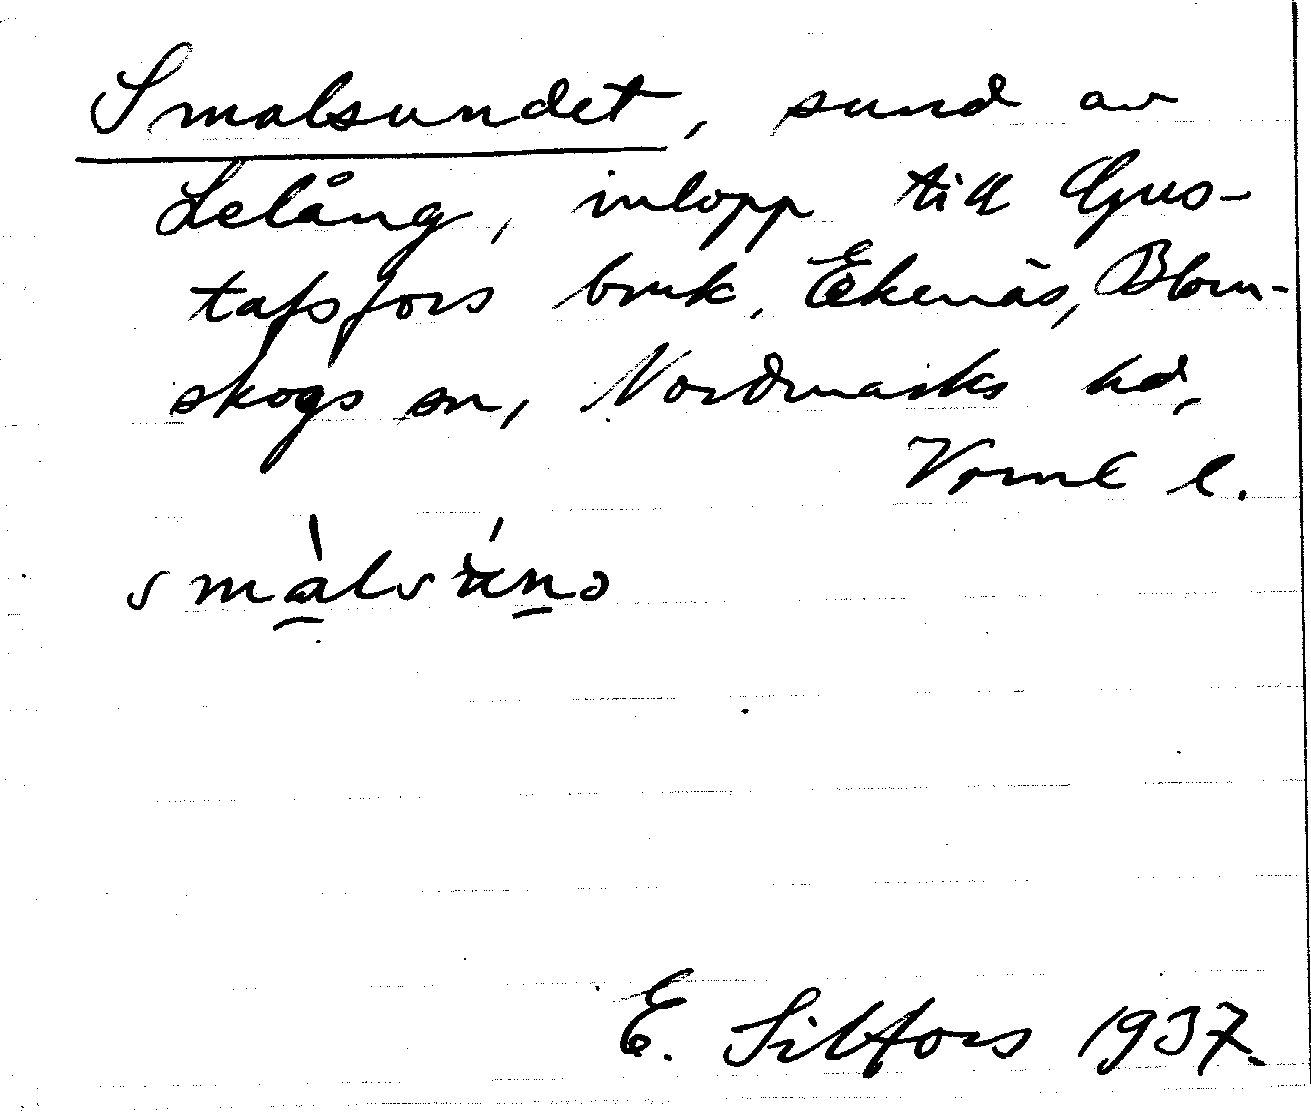 Smalsundet, sund av
Lelång, inlopp till Gus-
tafsfors bruk, Ekenäs, Blom-
skogs sn, Nordmarks hd,
Vrml l.
E. Silfors 1937.